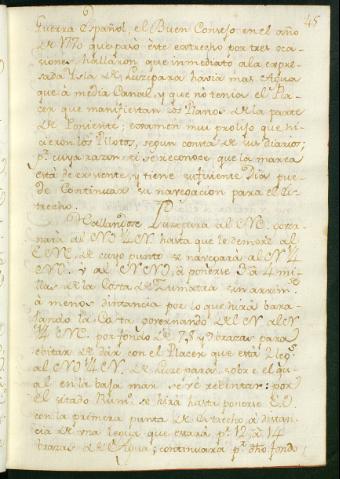 45
Guerra Español, el Buen Consejo en el año
de 1770 que paso este estrecho por tres oca
siones hallaron que inmediato a la expre
sada Isla de Luzepara havia mas Agua
que à media Canal, y que no tenia el Pla
cer que manifiestan los Planos de la parte
de Poniente; examen mui prolijo que hi
cieron los Pilotos, segun consta de sus diarios;
pr cuya razon si se reconoce, que la marea
està de creviente, y tiene suficiente Dia pue
de Continuar su navegacion para el Es-
trecho.
Hallandose Luzepara al ENE gover
narà al NO 4 N hasta que le demore al
ESE, de cuyo punto se navegarà al N 4
NE y al NNO, à ponerse 3 à 4 mi
llas de la Costa de Zumatra sin arrim
à menos distancia por lo que hirà bara
jando la Costa governando del N al N
1/4 NE por fondo de 7, 8 y Brazas para
ebitar de dàr con el Placer que està 2 legs
al NO 1/4 N de Luzepara sobre el qu
al en la baja mar se vè rebentar: por
el citado Rumbo se hirà hasta ponerse EO
con la primera punta de Estrecho à distàn
cia de una legua que estarà pr 12 à 14
brazas de Agua; continuarà pr dho fondo